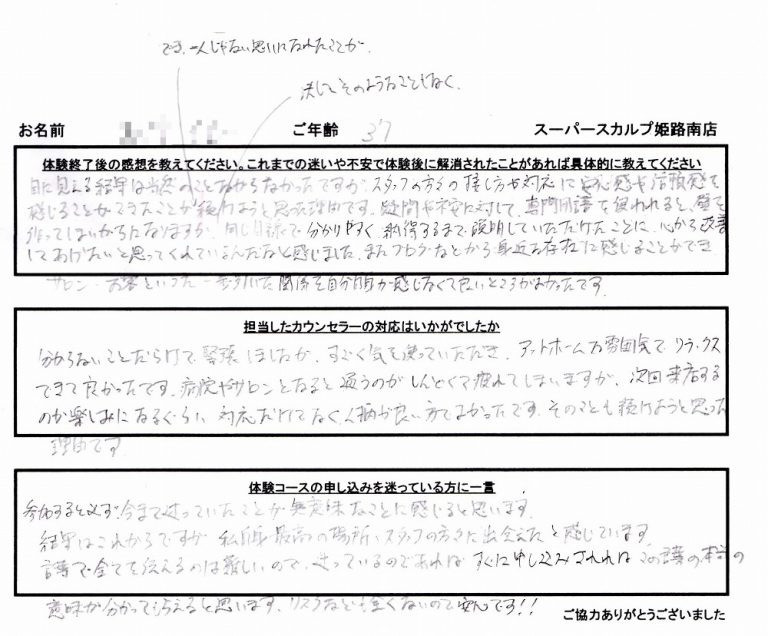 でき、一人じゃない思いになれたことが、
決してそのようなことはなく、
お名前 ご年齢 37 スーパースカルプ姫路南店
体験終了後の感想を教えてください。これまでの迷いや不安で体験後に解消されたことがあれば具体的に教えてください
目に見える結果は当然のことながらなかったですが、スタッフの方々の接し方や対応に安心感や信頼感を
感じることができたことが続けようと思った理由です。疑問や不安に対して、専門用語を使われると、壁を
作ってしまいがちになりますが、同じ目線で分かりやすく納得するまで説明していただけたことに、心から改善
してあげたいと思ってくれているんだなと感じました。またブログなどから身近な存在に感じることができ
サロン・お客といった一歩引いた関係を自分自身が感じなくて良いところがよかったです。
担当したカウンセラーの対応はいかがでしたか
分からないことだらけで緊張しましたが、すごく気を使っていただき、アットホームな雰囲気でリラックス
できて良かったです。病院やサロンとなると通うのがしんどくて疲れてしまいますが、次回来店する
のが楽しみになるぐらい対応だけでなく、人柄が良い方でよかったです。そのことも続けようと思った
理由です
体験コースの申し込みを迷っている方に一言
参加すると必ず、今まで迷っていたことが無意味なことに感じると思います。
結果はこれからですが、私自身最高の場所、スタッフの方々に出会えたと感じています。
言葉で全てを伝えるのは難しいので、迷っているのであればすぐに申し込みされればこの言葉の本当の
意味が分かってもらえると思います。リスクなども全くないので安心です!!
ご協力ありがとうございました